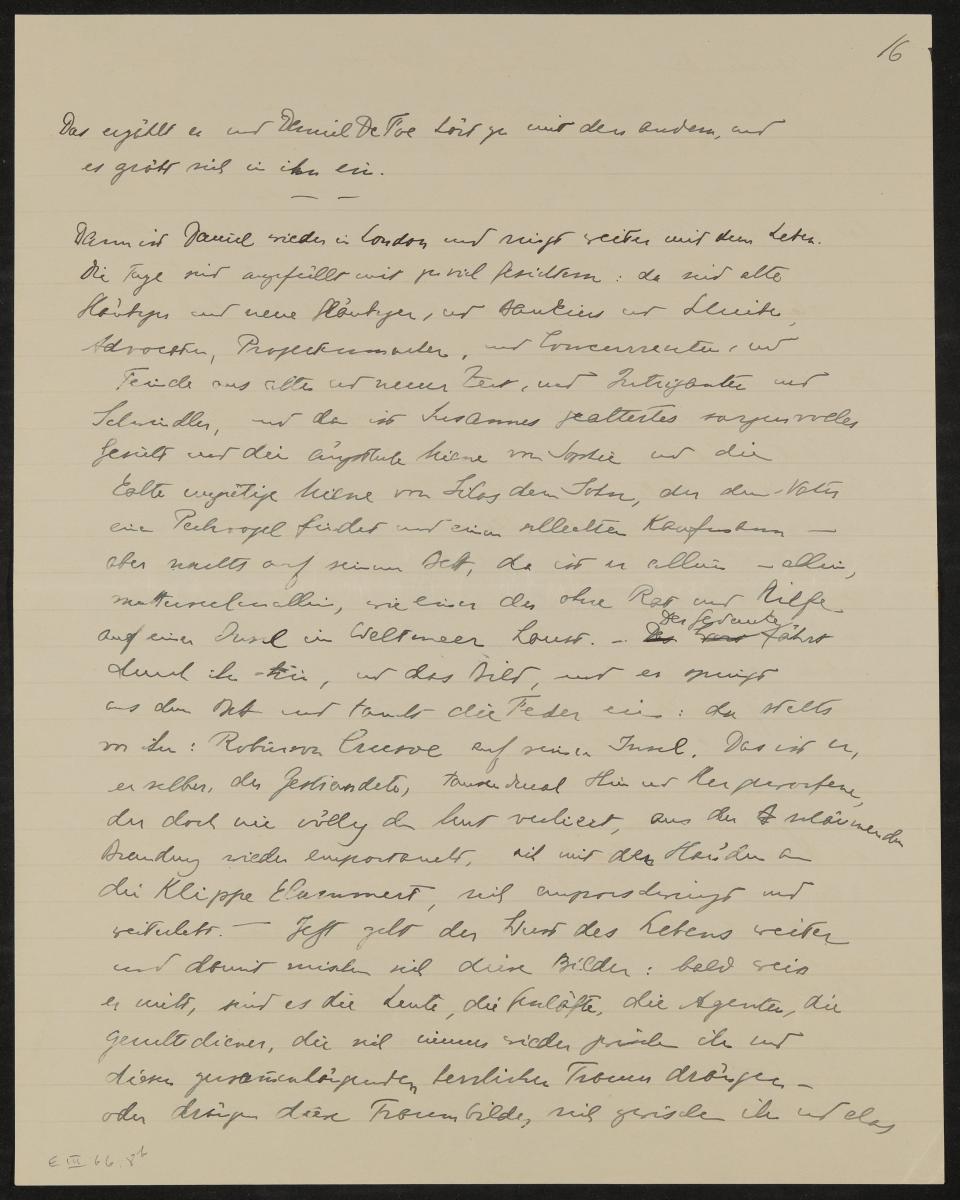 16
Das erzählt er und Daniel DeFoe hört zu mit den andern, und
es gräbt sich in ihn ein.
— —
Dann ist Daniel wieder in London und ringt weiter mit dem Leben.
Die Tage sind angefüllt mit zu viel Gesichtern: da sind alte
Gläubiger und neue Gläubiger, und Bankiers und
Advocaten, Projectenmacher, und Concurrenten, und
Feinde aus alter und neuer Zeit, und Intriganten und
Schwindler, und da ist Susannes gealtertes sorgenvolles
Gesicht und die ängstliche Miene von Sophie und die
kalte ungütige Miene von Silas dem Sohn, der den Vater
einen Pechvogel findet und einen schlechten Kaufmann —
aber nachts auf seinem Bett, da ist er allein – allein,
mutterseelenallein, wie einer der ohne Rat und Hilfe
auf einer Insel im Weltmeer haust. – Der Gedanke fährt
durch ihn hin, und das Bild, und er springt
aus dem Bett und taucht die Feder ein: da stehts
vor ihm: Robinson Crusoe auf seiner Insel. Das ist er,
er selber, der Gestrandete, tausendmal Hin und Hergeworfene,
der doch nie völlig den Mut verliert, aus der schäumenden
Brandung wieder emportaucht, sich mit den Händen an
die Klippe klammert, sich emporschwingt und
weiterlebt. — Jetzt geht der Wust des Lebens weiter
und damit mischen sich diese Bilder: bald weis
er nicht, sind es die Leute, die Geschäfte, die Agenten, die
Gerichtsdiener, die sich immer wieder zwischen ihn und
diesen zusammenhängenden herrlichen Traum drängen –
oder drängen diese Traumbilder, sich zwischen ihn und das
E III 66. 8b